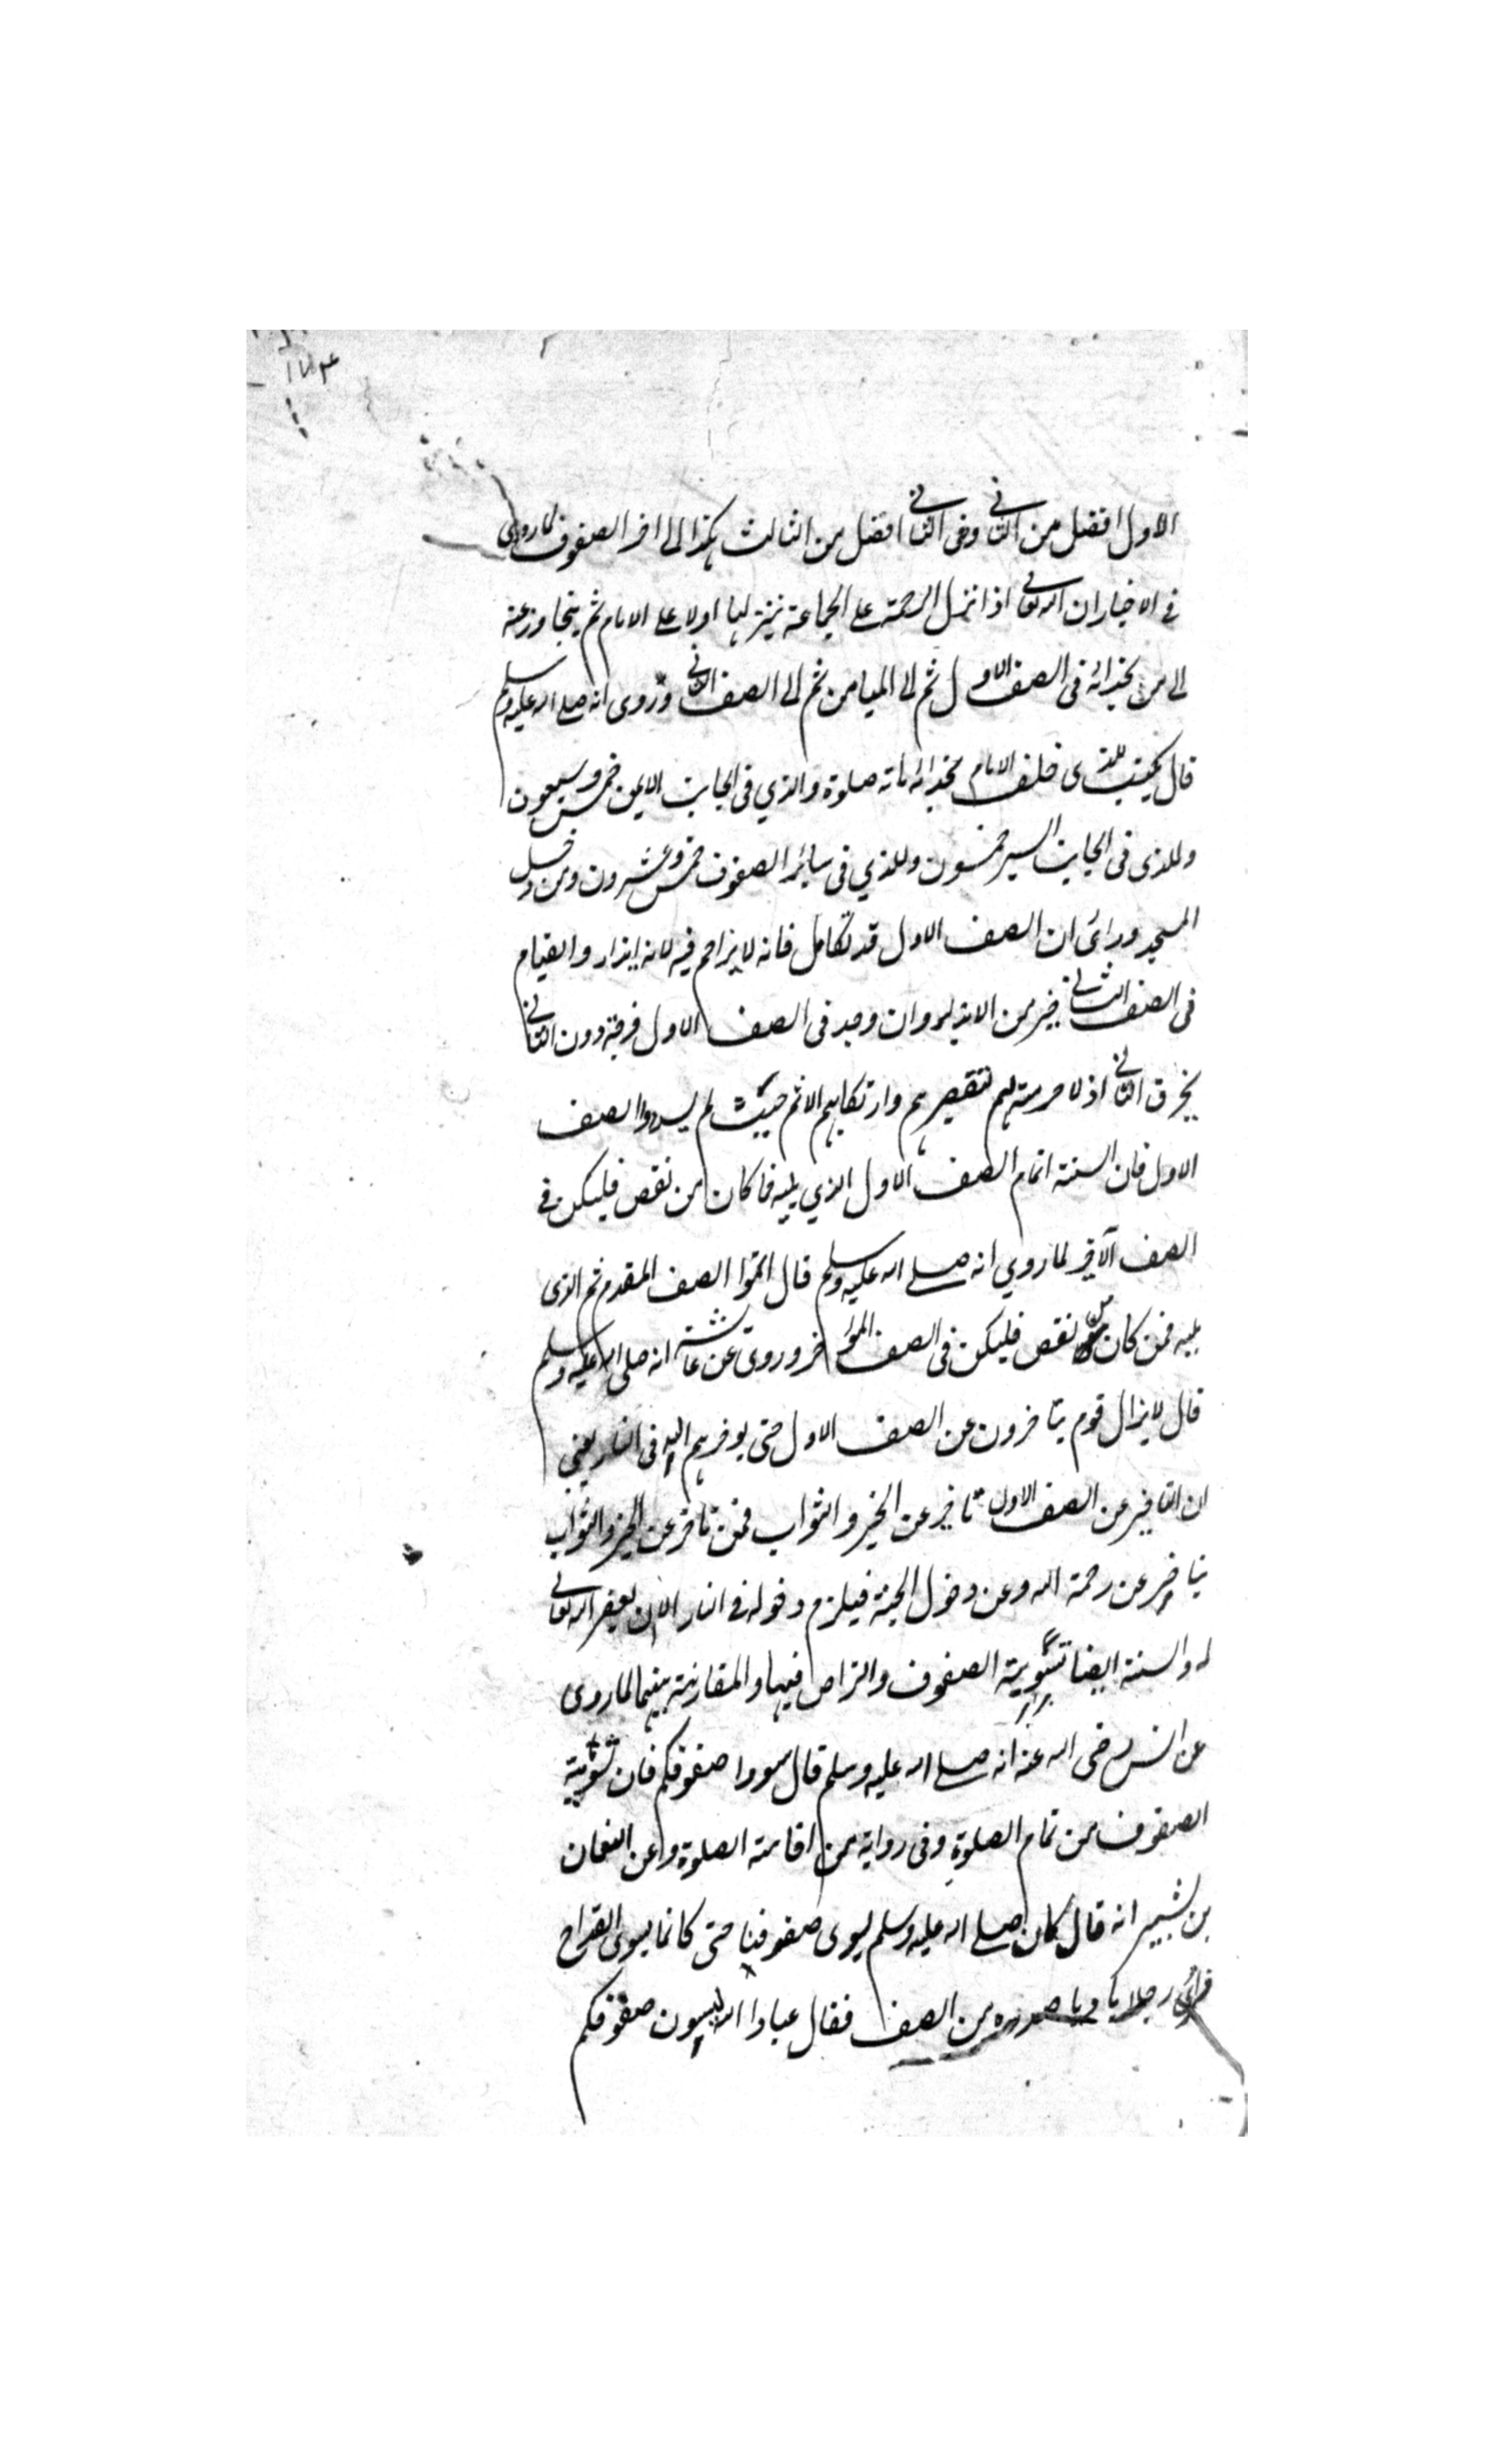 ١٧٣
الاول افضل من الثاني وفى الثاني افضل من الثالث هكذا الى اخر الصفوف لما روى
في الاخبار ان الله تعالى اذا انزل الرحمة على الجماعة ينزلها اولا على الامام ثم يتجاوز عنه
الى من بحذائه فى الصف الاول ثم الى الميامن ثم الى الصف الثاني وروى انه صلى الله عليه وسلم
قال يكتب للذى خلف الامام بحذائه مائة صلوة والذي فى الجانب الايمن خمس وسبعون
وللذى فى الجانب اليسر خمسون وللذي فى سائر الصفوف خمس وعشرون ومن دخل
المسجد ورائ ان الصف الاول قد تكامل فانه لا يزاحم فيه لانه ايذاء والقيام
فى الصف الثاني خير من الايذاء وان وجد فى الصف الاول فرجة دون الثاني
يخرق الثاني اذ لا حرمة لهم لتقصيرهم وارتكابهم الاثم حيث لم يسدوا الصف
الاول فان السنة اتمام الصف الاول الذي يليه فما كان من نقص فليكن في
الصف الآخر لما روي انه صلى الله عليه وسلم قال اتموا الصف المقدم ثم الذى
يليه فمن كان من نقص فليكن فى الصف المؤخر وروى عن عائشة انه صلى الله عليه وسلم
قال لا يزال قوم يتأخرون عن الصف الاول حتى يوخرهم الله فى النار يعني
ان التاخير عن الصف الاول تاخير عن الخير والثواب فمن تاخر عن الخير والثواب
يتاخر عن رحمة الله وعن دخول الجنة فيلزم دخوله في النار الا ان يغفر الله تعالى
له والسنة ايضا تسوية الصفوف والتراص فيها والمقاربة بينهما لما روى
عن انس رضى الله عنه انه صلى الله عليه وسلم قال سووا صفوفكم فان تسوية
الصفوف من تمام الصلوة وفى رواية من اقامة الصلوة وعن النعمان
بن بشير انه قال كان صلى الله عليه وسلم يسوى صفوفنا حتى كانما يسوى القداح
فرائ رجلا باديا صدره من الصف فقال عباد الله لتسون صفوفكم